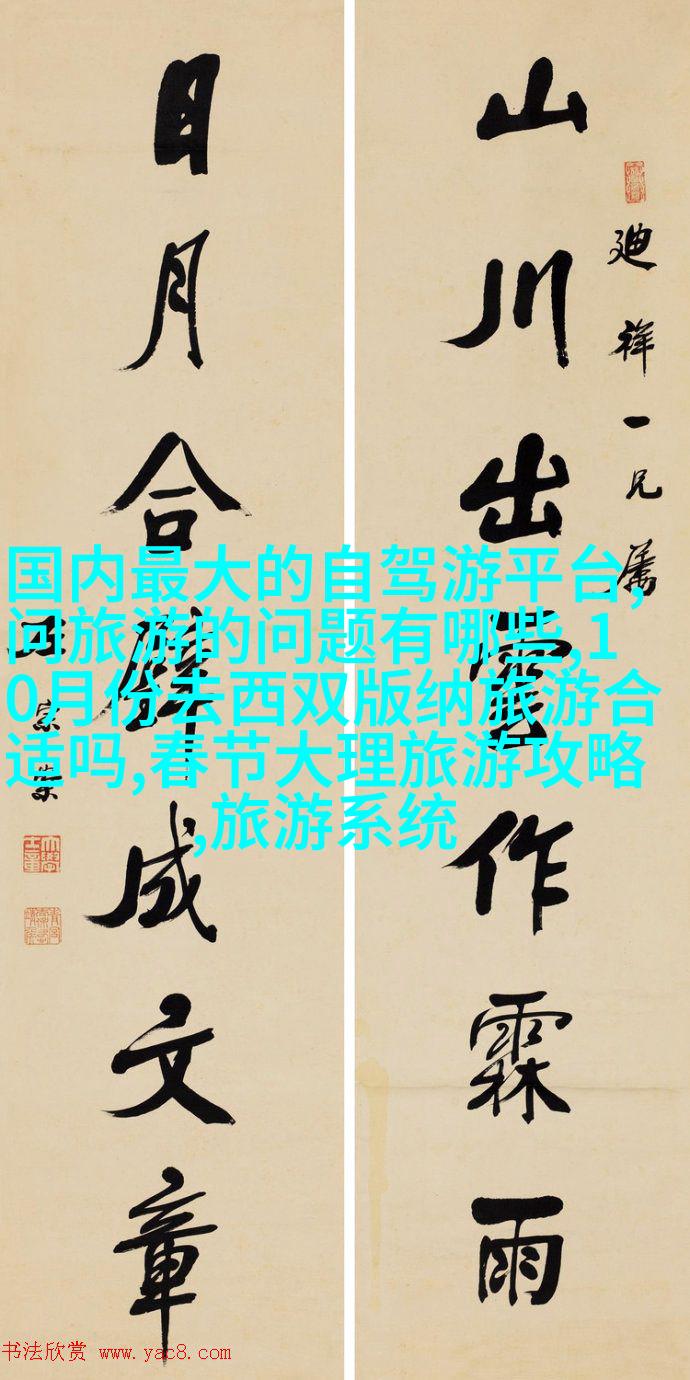 山川出雲作霖雨
廸祥一兄属
日月合璧成文章
国内最大的自驾游平台,
问旅游的问题有哪些,1
0月份去西双版纳旅游合
适吗,春节大理旅游攻略
,旅游系统
书法欣赏 www.yac8.com